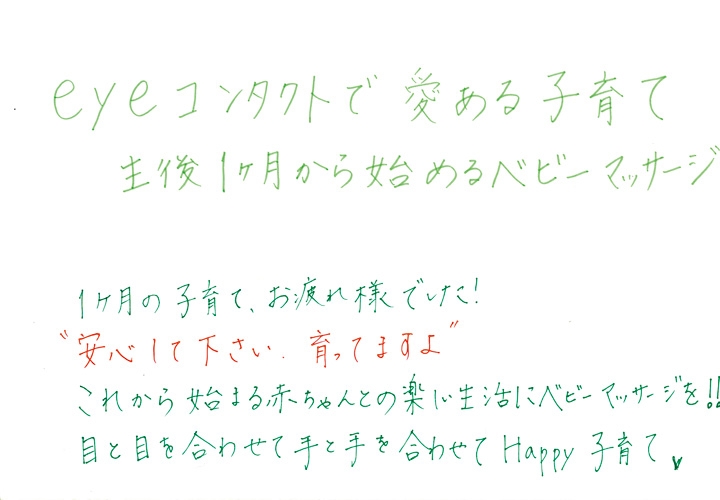 eyeコンタクトで 愛ある子育て
生後1ヶ月から始めるベビーマッサージ
1ヶ月の子育て、お疲れ様でした!
"安心して下さい. 育ってますよ"
これから始まる赤ちゃんとの楽しい生活にベビーマッサージを!!
目と目を合わせて手と手を合わせてHappy子育て♥